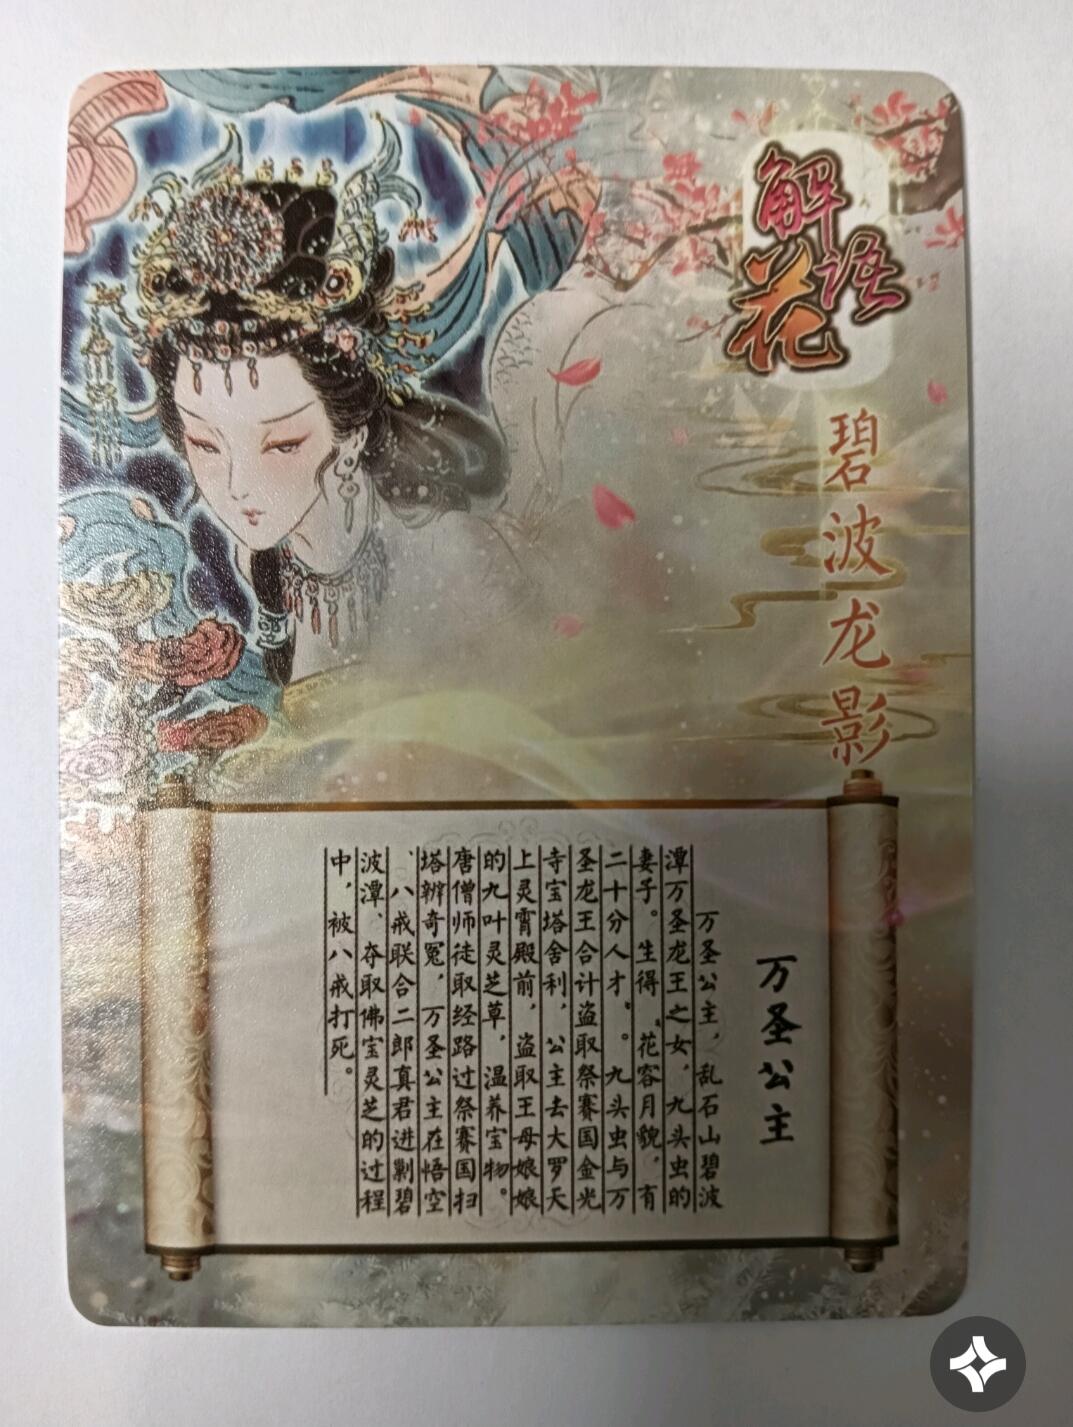 解语花
碧波龙影
万圣公主
万圣公主，乱石山碧波
潭万圣龙王之女，九头虫的
妻子。生得“花容月貌，有
二十分人才”。九头虫与万
圣龙王合计盗取祭赛国金光
寺宝塔舍利，公主去大罗天
上灵霄殿前，盗取王母娘娘
的九叶灵芝草，温养宝物。
唐僧师徒取经路过祭赛国扫
塔辨奇冤，万圣公主在悟空
、八戒联合二郎真君进剿碧
波潭、夺取佛宝灵芝的过程
中，被八戒打死。